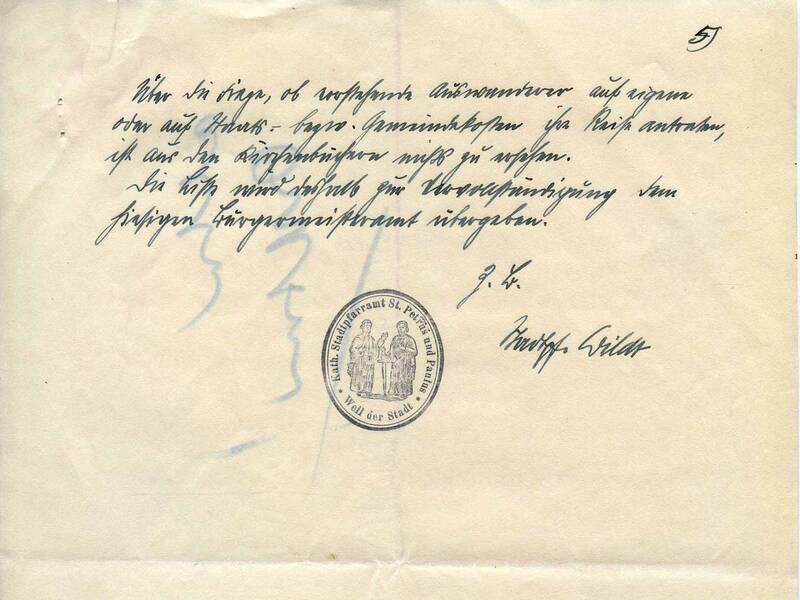 5)
Über die Frage, ob vorstehende Auswanderer auf eigene
oder auf Staats- bezw. Gemeindekosten ihre Reise antraten,
ist aus den Kirchenbüchern nichts zu ersehen.
Die Liste wird deshalb zur Vervollständigung dem
hiesigen Bürgermeisteramt übergeben.
Z. B.
Stadtpf. Wildt
Kath. Stadtpfarramt St. Petrus und Paulus
* Weil der Stadt *